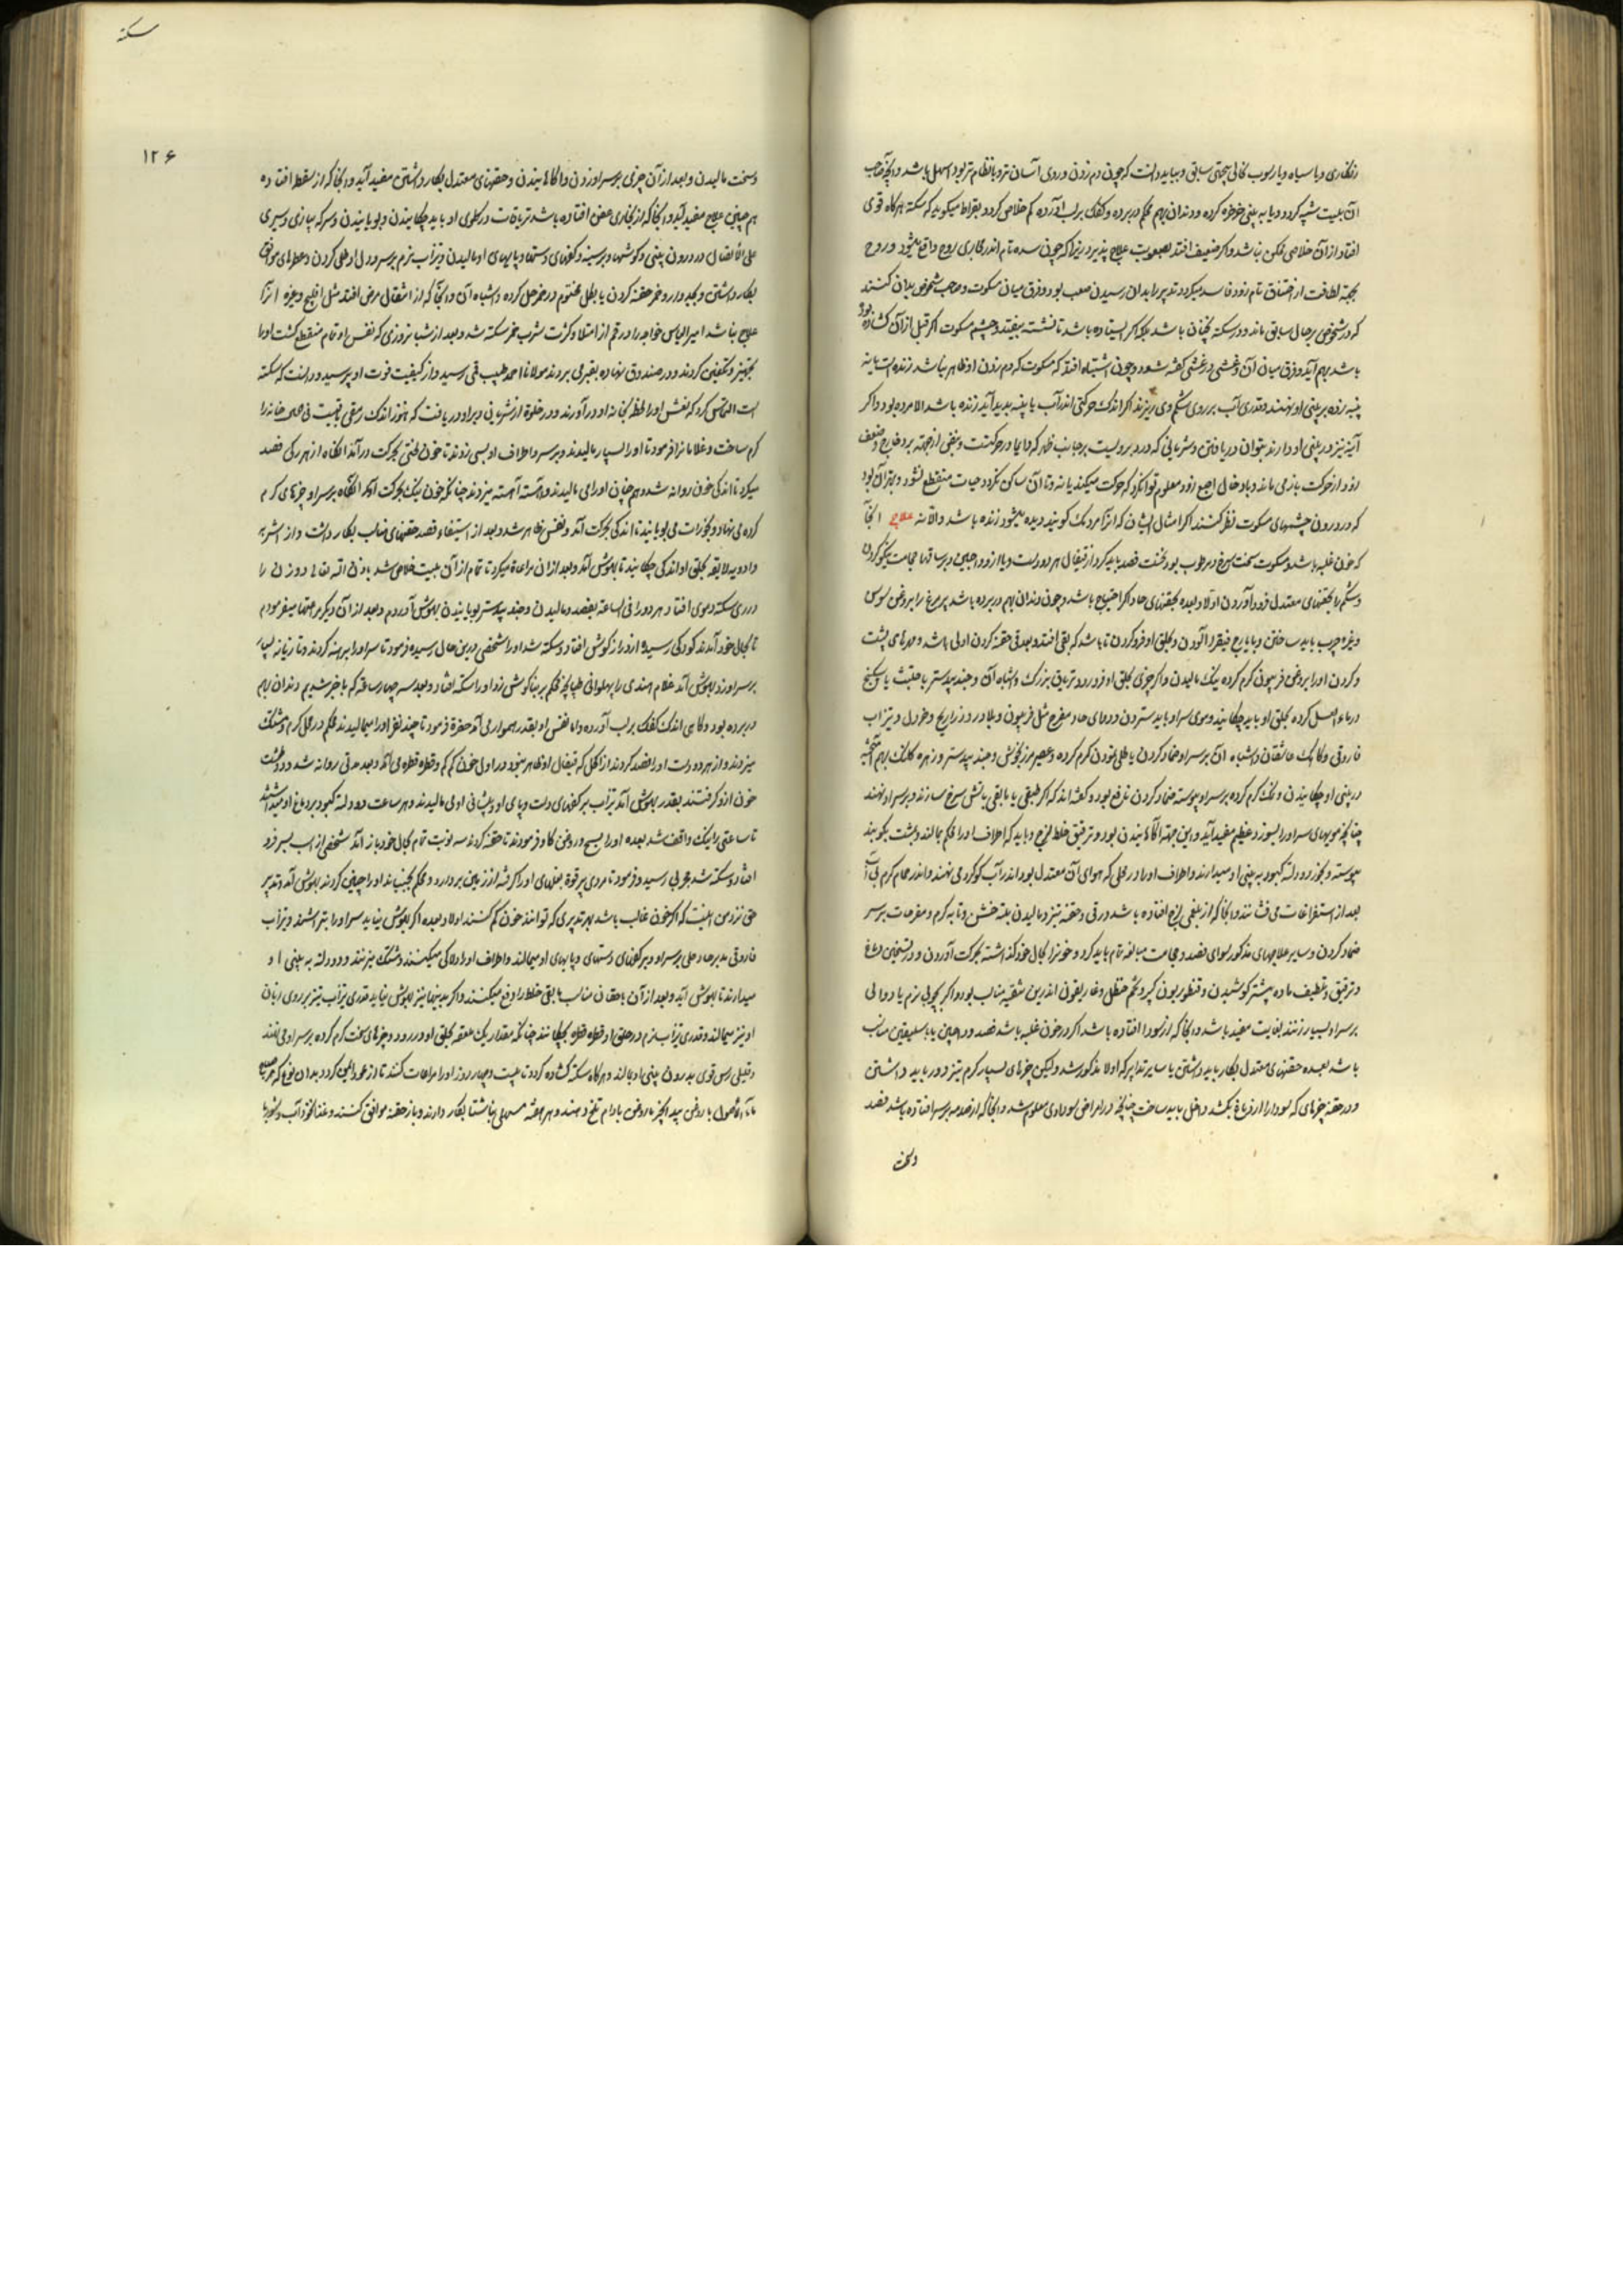 زنگاری و یا سیاه و یا رسوب
آن بلیت شپه کردد و یا به بینی خرخره کرده و دندان بهم محکم در برده و کفک بر لب آورده کم خلاص کردد و بقراط میکوید که سکته هرکاه قوی
افتاد از آن خلاصی ممکن نباشد و اکر ضعیف افتد بصعوبت علاج پذیرد زیرا که چون سده تام اندر مجاری روح واقع میشود و روح
بجهة لطافت از اختناق تام زود فاسد میکردد تدبیر را بدان رسیدن صعب بود و فرق میان مسکوت و صاحب شخوص بدان کنند
که در شخوص بر حال سابق ماند و در سکته چنان باشد بلکه اکر ایستاده باشد یا نشسته بیفتد و چشم مسکوت اکر قبل از آن کشاده بود
باشد بهم آید و فرق میان آن و غشی در غشی کفته شود و چون اشتباه افتد که مسکوت که دم زدن او ظاهر نباشد زنده است یا نه
پنبه زده بر بینی او نهند و قدری آب بر روی شکم وی ریزند اکر اندک حرکتی اندر آب یا پنبه پدید آید زنده باشد الا مرده بود و اکر
آینه نیز در بینی او دارند بتوان دریافتن و شریانی که در
که در درون چشمهای مسکوت نظر کنند اکر امثال ایشان که آنرا مردمک کویند دیده میشود زنده باشد و الا نه علاج آنجا
که خون غلبه باشد و مسکوت سخت سرخ و مرطوب بود نخست فصد باید کرد از قیفال هر دو دست و یا از وداجین و بر ساقها حجامت نیکو کردن
و شکم را بحقنهای معتدل فرود آوردن اولا و بعده بحقنهای حاد اکر احتیاج باشد و چون دندان بهم در برده باشد پر مرغ را بروغن سوسن
و غیره چرب باید ساختن و بایارج فیقرا آلودن و بحلق او فرو کردن تا باشد که بقی افتد و بعد قی حقنه کردن اولی باشد و مهرهای پشت
و کردن او را بروغن فرپیون کرم کرده نیک مالیدن و اکر چیزی بحلق او فرو رود تریاق بزرک و اشباه آن و جند بیدستر یا حلتیت یا سکبینج
در ماء العسل کرده بحلق او باید چکانید و موی سر او باید ستردن و دوای حاد مفرح مثل فرپیون و بلادر و زراریح و خردل و تیزاب
فاروقی و کاکنک عاشقان و اشباه آن بر سر او ضماد کردن یا طلی نمودن کرم کرده و عصیر مرزنجوش و جند بیدستر و زهره کلنک بهم آمیخته
در بینی او چکانیدن و نمک کرم کرده بر سر او پیوسته ضماد کردن نافع بود و کفته اند که اکر طبقی یا تابقی باتش سرخ سازند و بر سر او نهند
چنانچه مویهای سر او را بسوزد عظیم مفید آید و این جهة آکاهانیدن بود و ترقیق خلط لزج و باید که اطراف او را محکم بمالند و پشت بکوبند
پیوسته و بخور دود لته کبود به بینی او میدارند و اطراف او را در محلی که هوای آن معتدل بود اندر آب کوکرد می نهند و اندر حمام کرم بی آب
بعد از استفراغات می نشانند و آنجا که از بلغمی لزج افتاده باشد در قی و حقنه تیز و مالیدن بلته خشن و تابه کرم و مفرحات بر سر
ضماد کردن و سایر علاجهای مذکور سوای فصد و حجامت مبالغه تمام باید کرد و خونرا بحال خود کذاشته بحرکت آوردن و در تسخین دماغ
و ترقیق و تلطیف ماده پیشتر کوشیدن و قنطوریون کبیر و شحم حنظل و غاریقون اندرین تنقیه مناسب بود و اکر بچوبی نرم یا دوالی
بر سر او بسیار زنند بغایت مفید باشد و آنجا که از سودا افتاده باشد اکر در خون غلبه باشد فصد وداجین یا باسلیقین مناسب
باشد بعده حقنهای معتدل بکار باید داشتن یا سایر تدابیر که اولا مذکور شد و لیکن چیزهای بسیار کرم تیز دور باید داشتن
و در حقنه چیزهای که سودا را از دماغ بکشد داخل باید ساخت چنانچه در امراض سوداوی معلوم شد و آنجا که از صدمه بر سر افتاده باشد فصد
سکته
۱۲۶
و سخت مالیدن و بعد از آن چیزی بر سر او زدن و آکاهانیدن و حقنهای معتدل بکار داشتن مفید آید و آنجا که از سقطه افتاده
هم چنین علاج مفید آید و آنجا که از بخاری عفن افتاده باشد تریاقات در کلوی او باید چکانیدن و بویانیدن و سرکه پیازی و سیری
علی الاتصال در درون بینی و کوشها و بر سینه و کفهای دستها و پایهای او مالیدن و تیزاب نرم بر سر و دل او طلی کردن و عطرهای موافق
بکار داشتن و بجدوار و خمر حقنه کردن یا بطل مختوم در خمر حل کرده و اشباه آن و آنجا که از انتقال مرض افتد مثل افلیج و غیره آنرا
علاج نباشد امیر الیاس خواجه را در قم از امتلا و کثرت شرب خمر سکته شد و بعد از شبانروزی که نفس او تمام منقطع کشت او را
تجهیز و تکفین کردند و در صندوق نهاده بقبر می بردند مولانا احمد طبیب قمی رسید و از کیفیت فوت او پرسید و دانست که سکته
است التماس کرد که نعش او را لحظه بخانه او در آورند و در خلوة از شریانی دبر او دریافت که هنوز اندک رمقی باقیست فی الحال خانه را
کرم ساخت و غلامانرا فرمود تا او را بسیار مالیدند و بر سر و اطراف او بسی زدند تا خون فتنی بحرکت درآمد آنکاه از هر رکی فصد
میکرد تا اندکی خون روانه شد و هم چنان او را می مالیدند و آهسته آهسته میزدند چنانکه خون نیک بحرکت آمد آنکاه بر سر او چیزهای کرم
کرده می نهاد و بخورات می بویانید تا اندکی بحرکت آمد و نفس ظاهر شد و بعد از استیفاء فصد حقنهای مناسب بکار داشت و از اشربه
و ادویه لایقه بحلق او اندکی چکانید تا بهوش آمد و بعد از آن مراعاة میکرد تا تمام از آن بلیت خلاص شد باذن الله تعالی و زنی را
در ری سکته دموی افتاد هر دو را فی الساعة بفصد و مالیدن و جند بیدستر بویانیدن بهوش آوردم و بعد از آن دیکر مراحتها میفرمودم
تا بحال خود آمدند کودکی رسیده از دراز کوش افتاد و سکته شد او را شخصی درین حال رسیده فرمود تا سر او را برهنه کردند و تازیانه بسیار
بر سر او زد بهوش آمد غلام هندی را پهلوانی طپانچه محکم بر بناکوش زد او را سکته افتاد و بعد سه چهار ساعة که با خبر شدیم دندان بهم
در برده بود و کاهی اندک کفک بر لب آورده و اما نفس او بقدر هموار می آمد حضرة فرمود تا چند نفر او را میمالیدند محکم در محل کرم و مشتک
میزدند و از هر دو دست او را فصد کردند از اکحل که قیفال او ظاهر نبود در اول خون کم کم و قطره قطره می آمد و بعد مدتی روانه شد و دو طشت
خون ازو کرفتند بقدر بهوش آمد تیزاب بر کفهای دست و پای او و پیشانی او می مالیدند و هر ساعت دود لته کبود بر دماغ او میداشتند
تا ساعتی را نیک واقف شد بعده او را بسبح و روغن کاو فرمودند تا حقنه کردند سه نوبت تمام بحال خود باز آمد شخصی از اسب بسر فرو
افتاد و سکته شد عربی رسید و فرمود تا مردی پر قوة بغلهای او را کرفته از زمین بردارد و محکم بجنباند او را چنین کردند بهوش آمد و تدبیر
حق نزد من اینست که اکر خون غالب باشد بهر تدبیری که توانند خون کم کنند اولا و بعده اکر بهوش نیاید سر او را بتراشند و تیزاب
فاروقی مدبر حاد طلی بر سر او و بر کفهای دستهای و پایهای او میمالند و اطراف او را دلکی میکنند و مشتک میزنند و دود لته به بینی او
میدارند تا بهوش آید و بعد از آن باحقان مناسب مابقی خلط را دفع میکنند و اکر بدینها نیز بهوش نیاید قدری تیزاب تیز بر روی زبان
او نیز میمالند و قدری تیزاب نرم در حلق او قطره قطره بچکانند چنانکه مقدار یک ملعقه بحلق او در رود و چیزهای سخت کرم کرده بر سر او می نهند
و هرکاه سکته کشاده کردد تا بیست و چهار روز او را مراعات کنند تا از عود ایمن کردد بدان نوع که هر صباح
ماء الاصول با روغن بید انجیر با روغن بادام تلخ دهند و هر هفته مسهلی ناشتا بکار دارند و باز حقنه موافق کنند و غذا نخود آب و شوربا